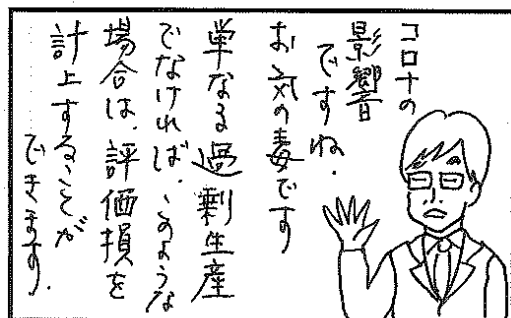 コロナの
影響
ですね.
お気の毒です
単なる過剰生産
でなければ、このような
場合は、評価損を
計上することが
できます.